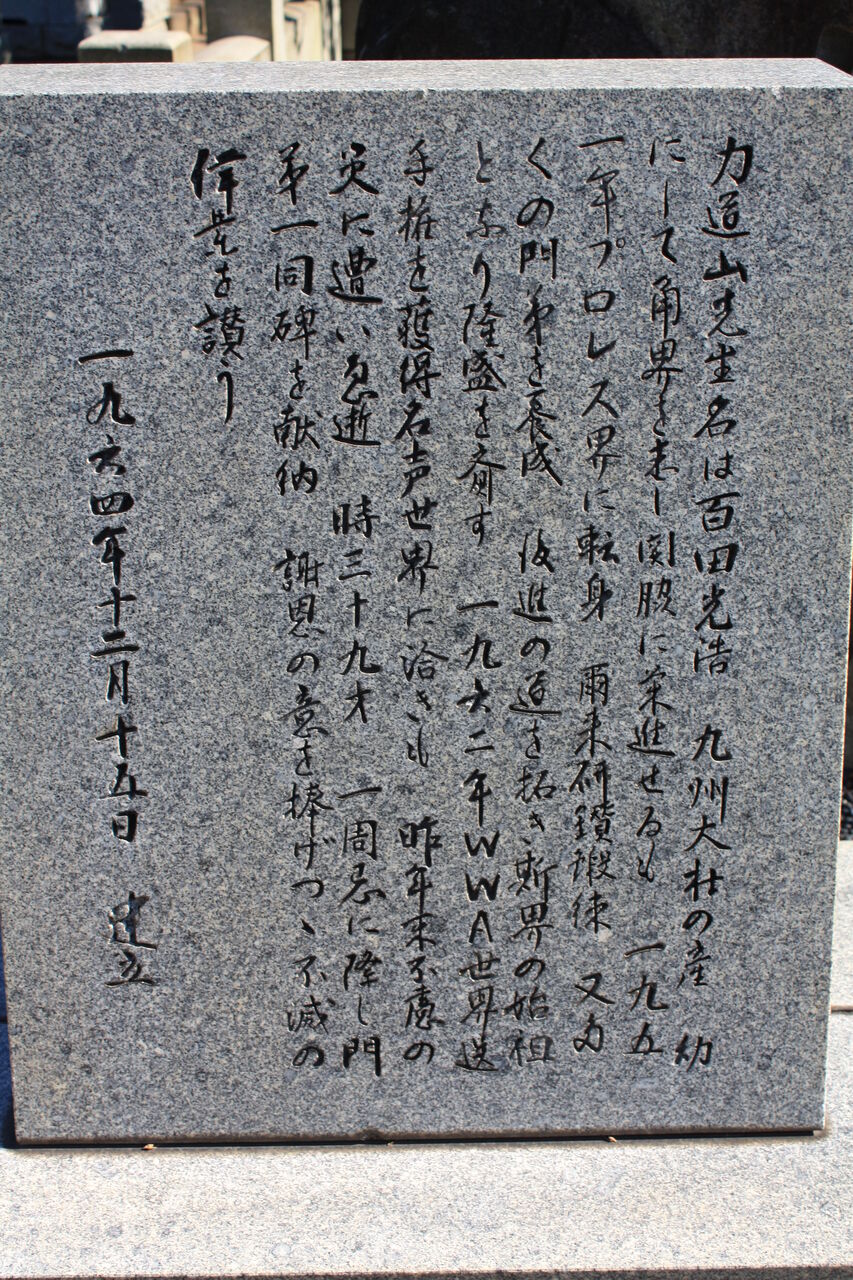 力道山先生名は百田光浩　九州大村の産　幼
にして角界を志し関脇に栄進せるも　一九五
一年プロレス界に転身　爾来研鑚鍛練　又多
くの門弟を養成　後進の道を拓き斯界の始祖
となり隆盛を齎す　一九六二年WWA世界選
手権を獲得名声世界に洽きも　昨年末不慮の
災に遭い急逝　時三十九才　一周忌に際し門
弟一同碑を献納　謝恩の意を捧げつゝ不滅の
偉業を讃う
一九六四年十二月十五日　建立